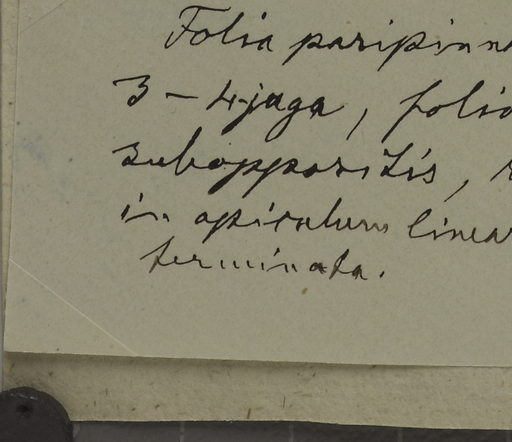 Folia paripinna
3-4-juga, folio
suboppositis, 
in apiculum linea
terminata.